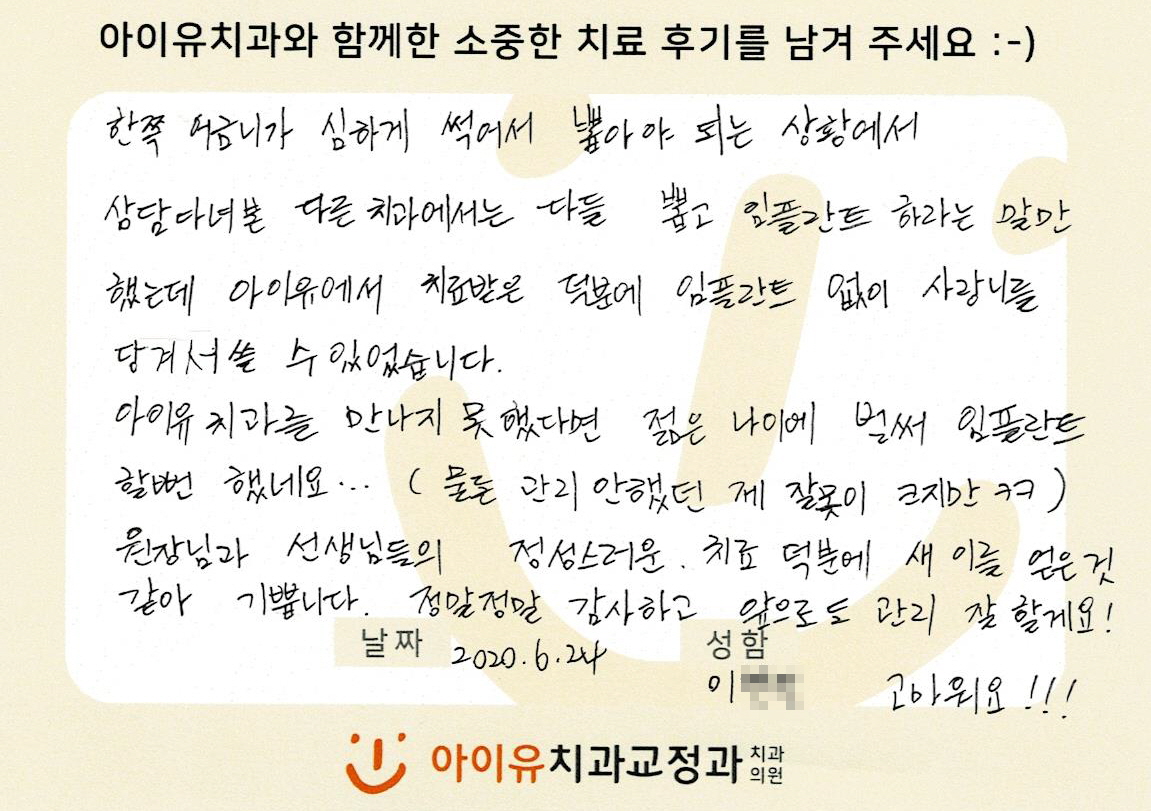 아이유치과와 함께한 소중한 치료 후기를 남겨 주세요 :-)
한쪽 어금니가 심하게 썩어서 뽑아야 되는 상황에서
상담다녀본 다른 치과에서는 다들 뽑고 임플란트 하라는 말만
했는데 아이유에서 치료받은 덕분에 임플란트 없이 사랑니를
당겨서 쓸 수 있었습니다.
아이유 치과를 만나지 못했다면 젊은 나이에 벌써 임플란트
할뻔 했네요... ( 물론 관리 안했던 제 잘못이 크지만 ㅋㅋ )
원장님과 선생님들의 정성스러운 치료 덕분에 새 이를 얻은것
같아 기쁩니다. 정말정말 감사하고 앞으로도 관리 잘 할게요!
날짜 2020.6.24 성함
이
고마워요!!!
아이유치과교정과 치과의원